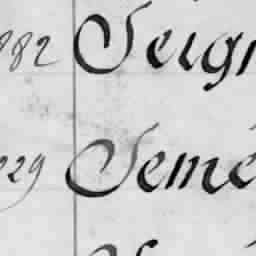 882 Seign
229 Semé